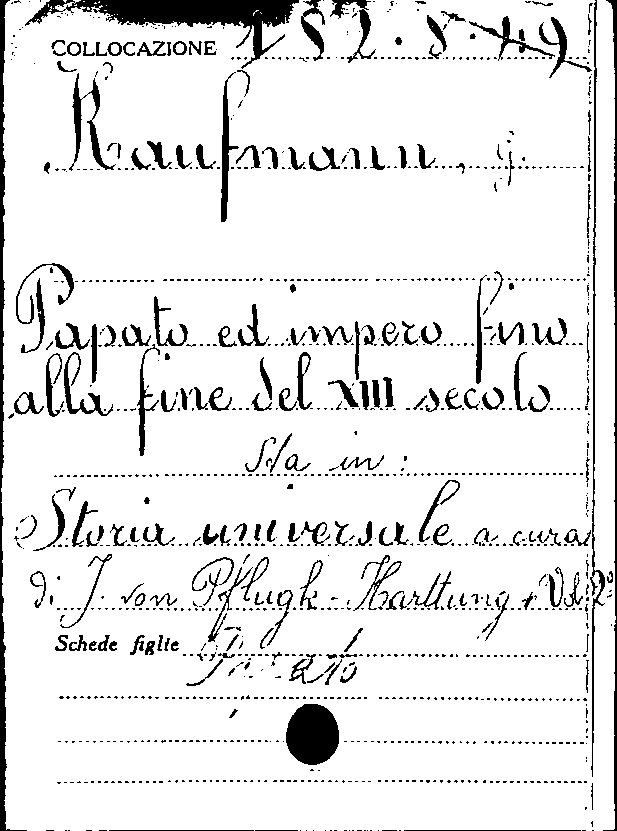 COLLOCAZIONE 182.8.49
Kaufmann, G.
Papato ed impero fino
alla fine del XIII secolo
Sta in:
Storia universale a cura
di J. von Pflugk-Harttung, Vol. 2°
Schede figlie